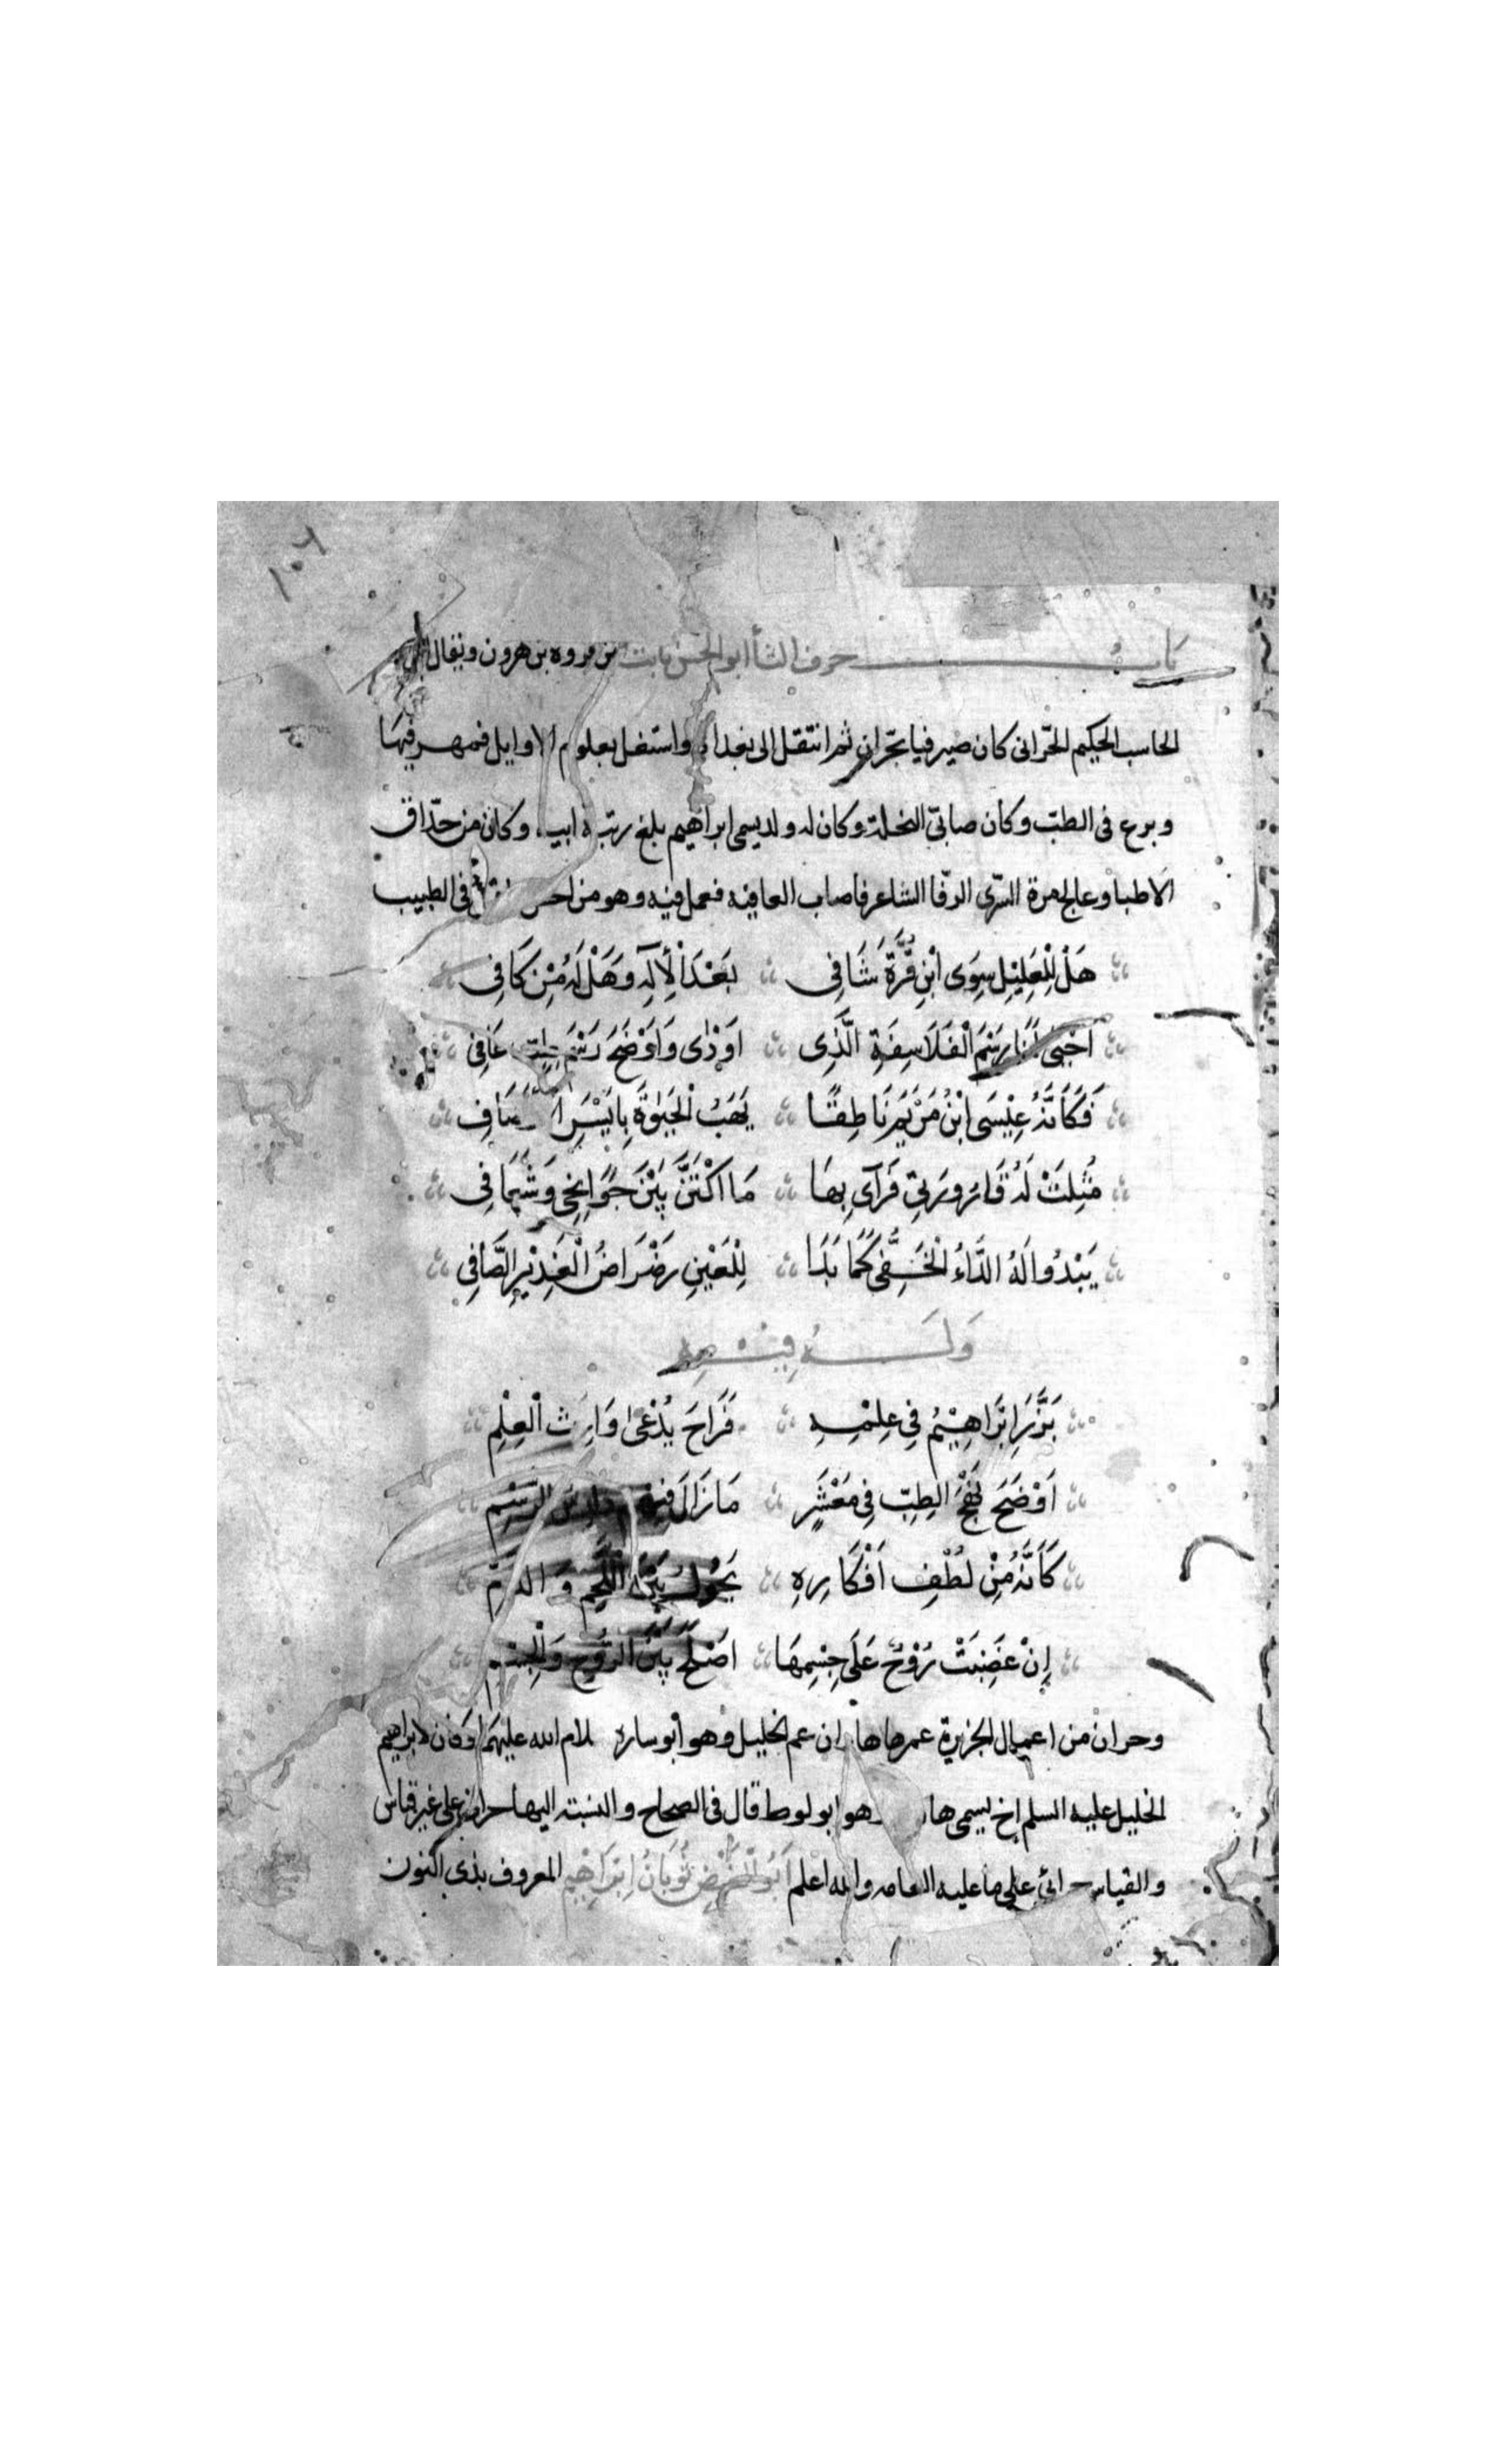 باب حرف الثا أبو الحسن ثابت بن قروه بن هرون ويقال
الحاسب الحكيم الحرّانى كان صيرفيا بحرّان ثم انتقل الى بغداد واشتغل بعلوم الاوايل فمهر فيها
وبرع فى الطبّ وكان صابىّ النحلة وكان له ولد يسمى ابراهيم بلغ رتبة ابيه وكان من حذّاق
الاطبا وعالج مرة السّرى الرفّا الشاعر فاصاب العافيه فعمل فيه وهو من احسن فى الطبيب
هَلْ لِلْعَلِيْلِ سِوَى ابْنِ قُرَّةَ شَافِى بَعْدَ الْأِلَهِ وَهَلْ لَهُ مِنْ كَافِى
اَحْيَى لَنَا رَسْمَ الْفَلَاسِفَةِ الَّذِى اَوْدٰى وَاَوْضَحَ رَسْمَ طِبٍّ عَافِى
فَكَاَنَّهُ عِيْسَى ابْنُ مَرْيَمَ نَاطِقًا يَهَبُ الْحَيٰوةَ بِاَيْسَرِ
مُثِلَتْ لَهُ قَارُورَتِى فَرَآى بِهَا مَا اكْتَنَّ بَيْنَ جَوَانِحِى وَشَغَافِى
يَبْدُوا لَهُ الدَّاءُ الْخَفِىُّ كَمَا بَدَا لِلْعَيْنِ رَضْرَاضُ الْغَدِيْرِ الصَّافِى
وَلَهُ فِيْهِ
بَرَّزَ اِبْرَاهِيْمُ فِى عِلْمِهِ فَرَاحَ يُدْعٰى وَارِثَ الْعِلْمِ
اَوْضَحَ نَهْجَ الطِبِّ فِى مَعْشَرٍ مَا زَالَ فِيْهِمْ دَارِسَ الرَّسْمِ
كَاَنَّهُ مِنْ لُطْفِ اَفْكَارِهِ يَجُوْلُ بَيْنَ اللَّحْمِ وَالدَمِّ
اِنْ غَضِبَتْ رُوْحٌ عَلَى جِسْمِهَا اَصْلَحَ بَيْنَ الرُّوْحِ وَالْجِسْمِ
وحران من اعمال الجزيرة عمرها هاران عم الخليل وهو أبو ساره سلام الله عليهما وكان لابراهيم
الخليل عليه السلم اخ يسمى هاران وهو ابو لوط قال فى الصحاح والنسبته اليها حرنانى على غير قياس
والقياس حرانىّ على ما عليه العامه والله اعلم اَبُو الْفَيْضِ ثُوبَانُ اِبْرَاهِيْمِ المعروف بذى النون